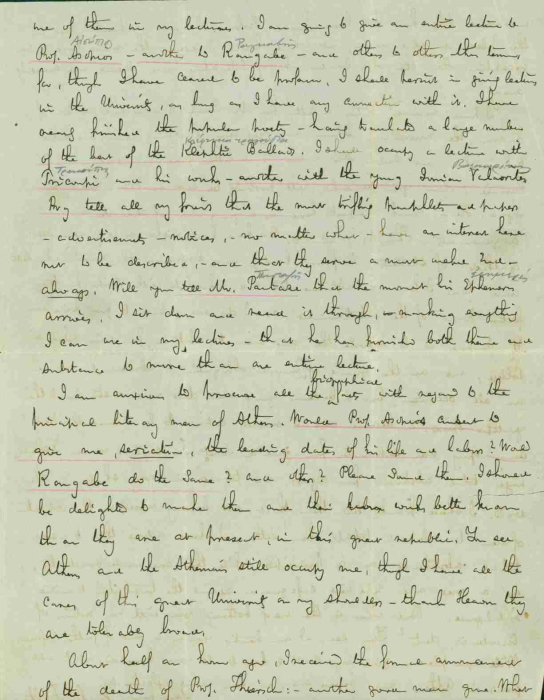 me of them in my lectures. I am going to give an entire lecture to
Prof. Asopios - another to Rangabe - and others to others this term
for, though I have ceased to be professor, I shall persist in giving lectures
in the University, as long as I have any connection with it. I have
nearly finished the popular poetry - having translated a large number
of the best of the Klephtic Ballads. I shall occupy a lecture with
Tricoupi and his works - another with the young Ionian Valaorites
Pray tell all my friends that the most trifling pamphlets and papers
- advertisements - notices, - no matter what - have an interest here
not to be described, - and that they serve a most useful end -
always. Will you tell Mr. Pantazes that the moment his Ephemeris
arrives, I sit down and read it through, marking everything
I can use in my lectures - that he has furnished both theme and
substance to more than one entire lecture.
I am anxious to procure all the biographical facts with regard to the
principal literary men of Athens. Would Prof. Asopios consent to
give me, seriatim, the leading dates of his life and labors? Would
Rangabe do the same? and others? Please sound them. I should
be delighted to make them and their labors widely better known
than they are at present, in this great republic. You see
Athens and the Athenians still occupy me, though I have all the
cares of this great University on my shoulders - thank Heaven they
are tolerably broad.
About half an hour ago, I received the formal announcement
of the death of Prof. Thiersch: - another good man gone. What